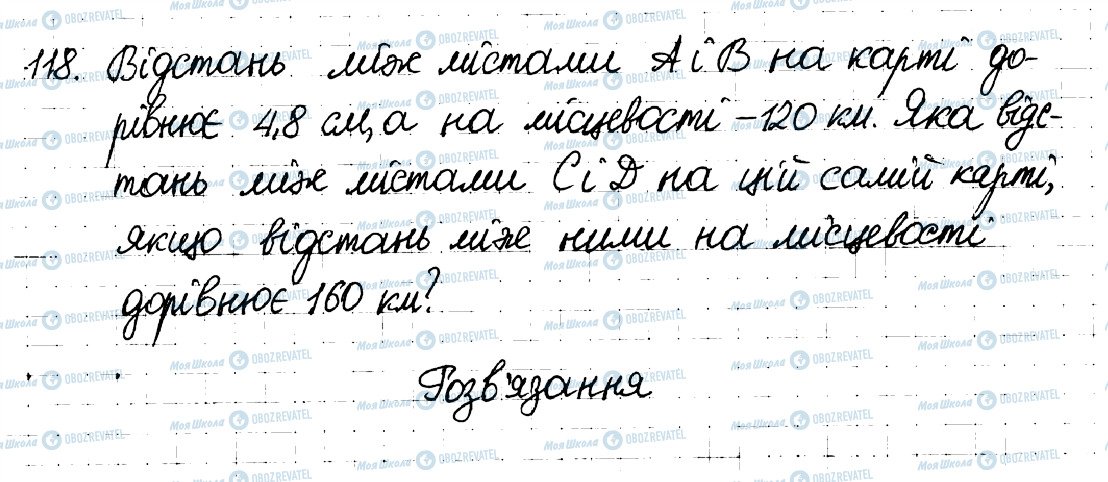 118. Відстань між містами А і В на карті до-
рівнює 4,8 см, а на місцевості – 120 км. Яка відс-
тань між містами С і D на цій самій карті,
якщо відстань між ними на місцевості
дорівнює 160 км?
Розв'язання